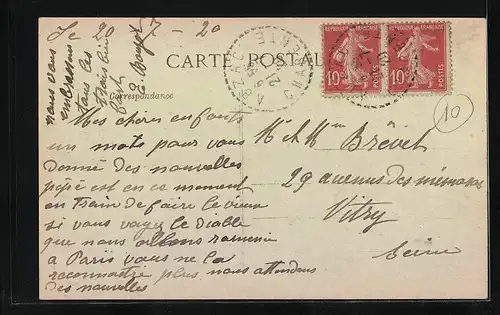 Le 20 - 7 - 20
CARTE POSTALE
Correspondance
Mes chers enfants
un mots pour vous
donné des nouvelles
pépé est en ce moment
en train de faire le vieux
si vous voyez le diable
que nous allons ramenie
a Paris vous ne la
reconnaitre plus nous attendons
des nouvelles
nous vous
embrassons
tous les
bien
E. Rouget
M et Mme Brévet
29 avenues des
Vitry
Seine
10
REPUBLIQUE FRANÇAISE
10c
POSTES
REPUBLIQUE FRANÇAISE
10c
POSTES
CHARENTE